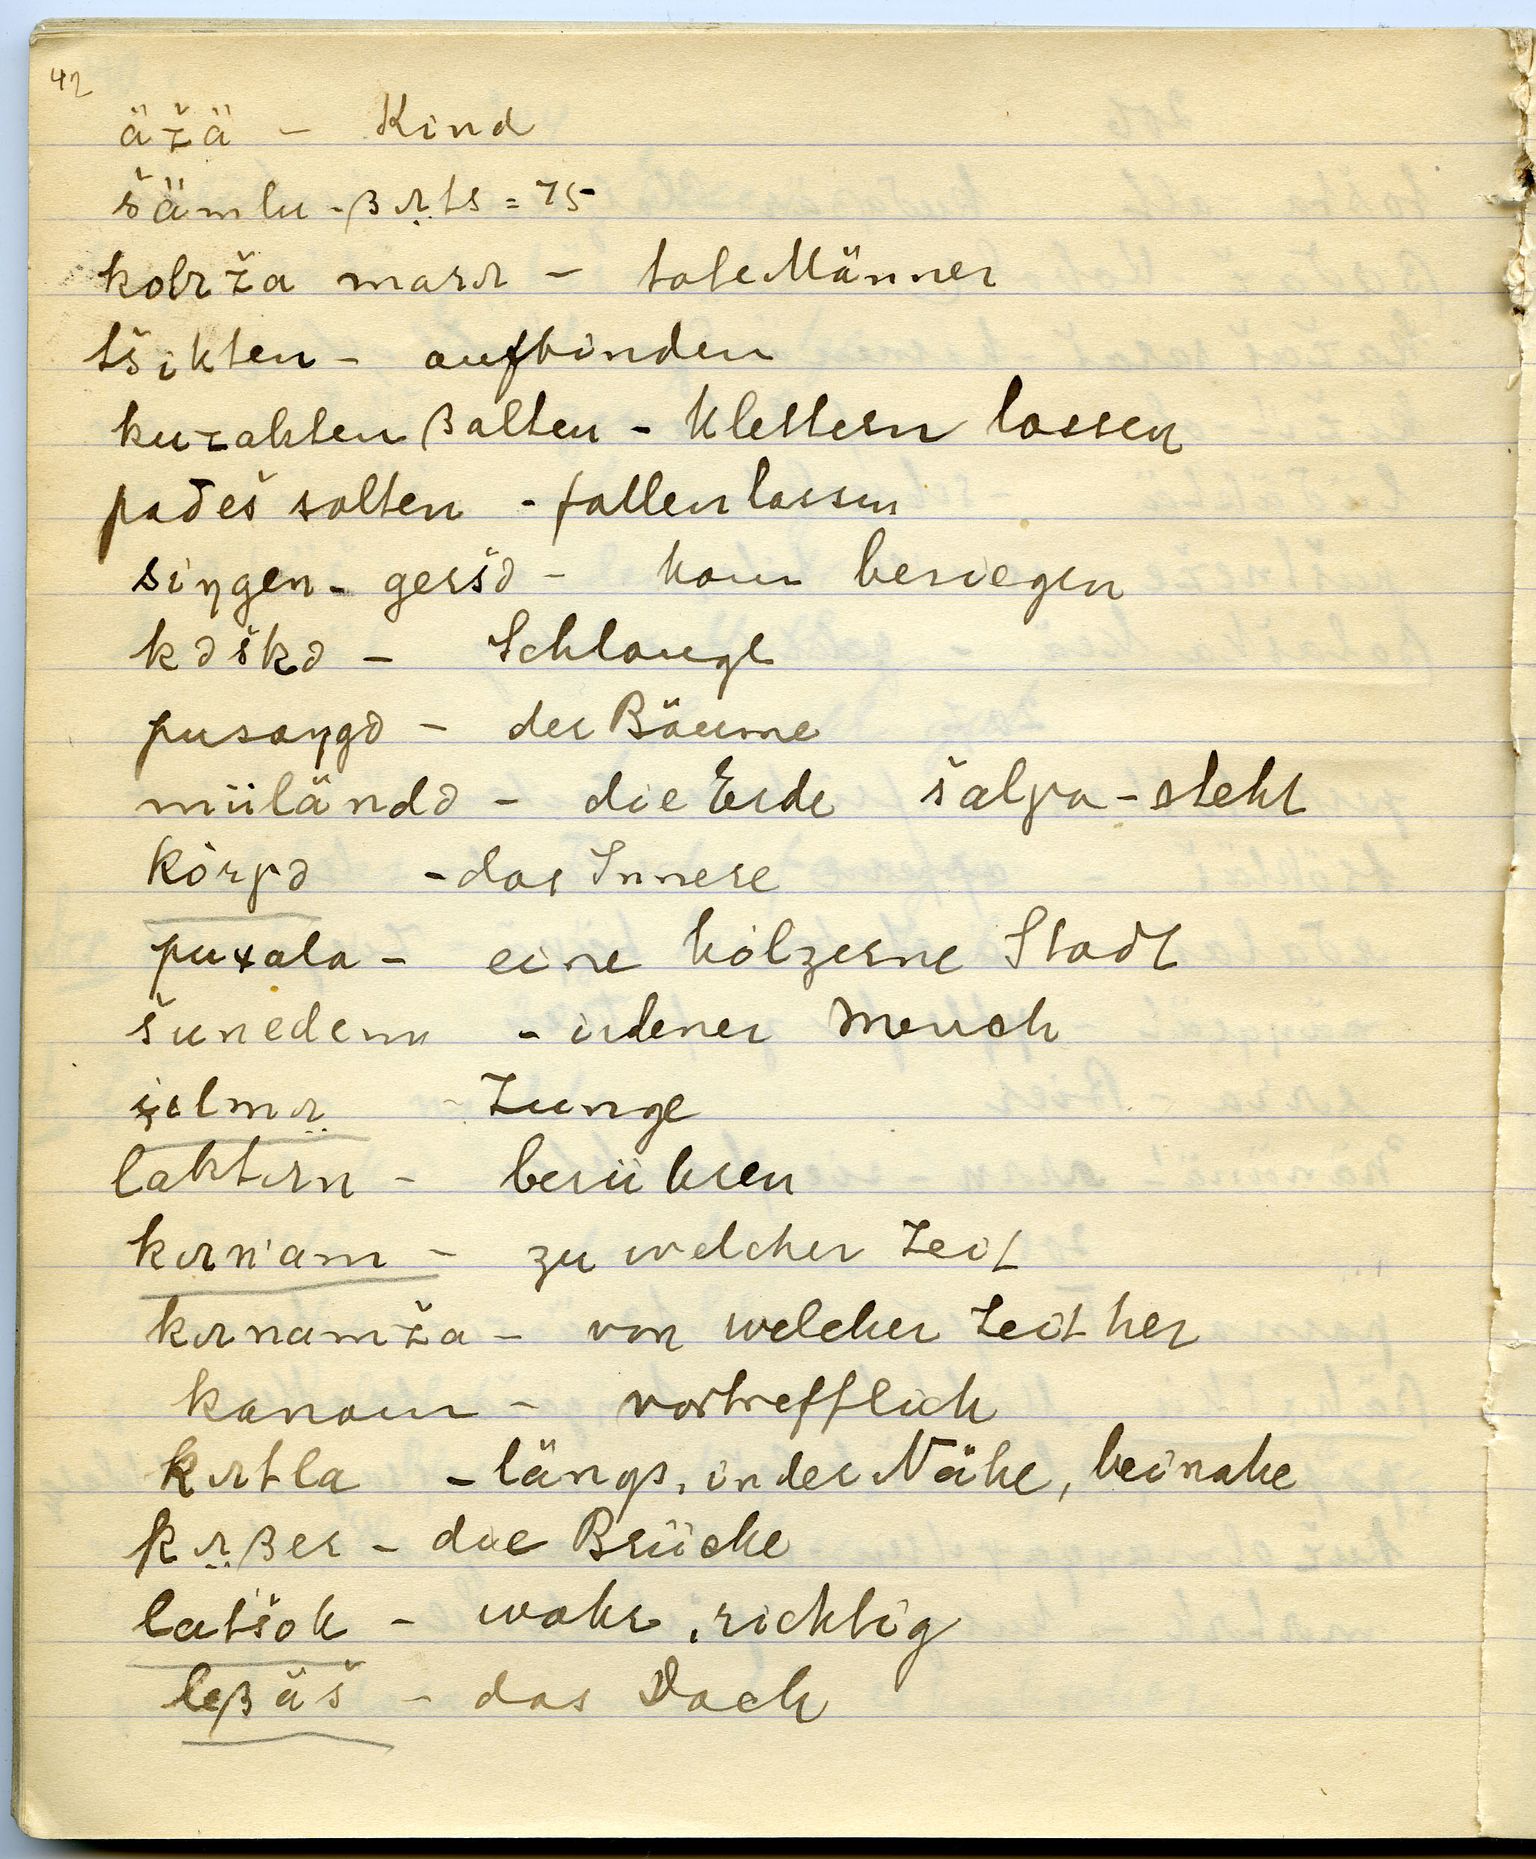 42
äžä - Kind
šämlu-βɪ̈ts = 75
kolɪža marɪ - tote Männer
tšɪkten - aufbinden
kuzakten βalten - klettern lassen
paδeš solten - fallen lassen
siŋgen - geršə - kann besiegen
kəškə - Schlange
pusaŋgə - der Bäume
müländə - die Erde šalγa - steht
körγə - das Innere
puxala - eine hölzerne Stadt
šunedem - irdener Mensch
jɪlmɪ̈ - Zunge
laktɪn - berühren
kɪn'am - zu welcher Zeit
kɪnamža - von welcher Zeit her
kanaun - vortrefflich
kɪtla - längs, in der Nähe, beinahe
kɪ̈βer - die Brücke
latšok - wahr, richtig
leβäš - das Dach